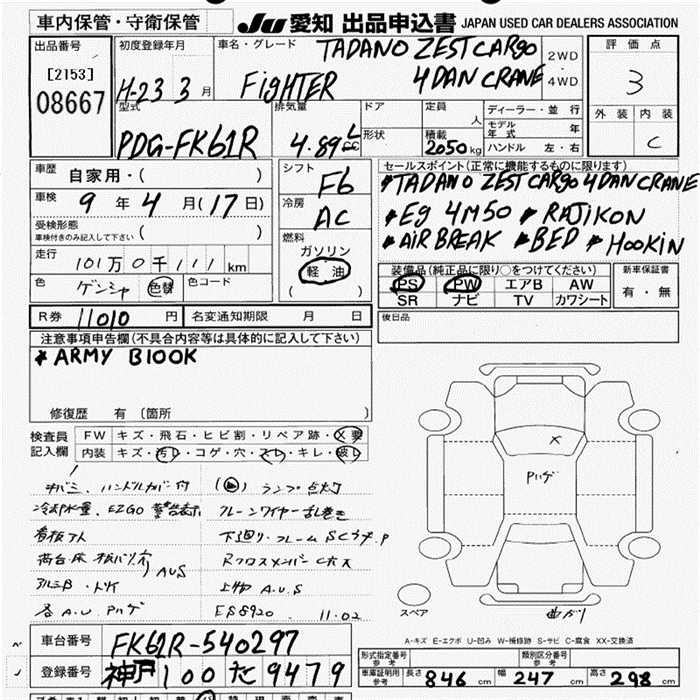 車内保管・守衛保管
JU 愛知 出品申込書 JAPAN USED CAR DEALERS ASSOCIATION
出品番号
[2153]
08667
初度登録年月
H-23 3 月
車名・グレード
TADANO ZEST CARGO
FIGHTER 4DAN CRANE
2WD
4WD
評価点
3
外装 内装
C
型式
PDG-FK61R
排気量
4.89 L
cc
ドア
形状
定員
人
積載
2050 kg
ディーラー・並行
モデル年式 年
ハンドル 左・右
車歴
自家用・( )
車検
9 年 4 月 (17 日)
受検形態
車検付きのみ記入して下さい ( )
走行
101 万 0 千 111 km
色
ゲンシャ 色替
色コード
シフト
F6
冷房
AC
燃料
ガソリン
軽油
( )
セールスポイント(正常に機能するものに限ります)
*TADANO ZEST CARGO 4DAN CRANE
*Eg 4M50 * RAJIKON
*AIR BREAK *BED * HOOKIN
装備品(純正品に限り○をつけてください)
PS PW エアB AW
SR ナビ TV カワシート
新車保証書
有・無
R券 11010 円
名変通知期限 月 日
後日品
注意事項申告欄(不具合内容等は具体的に記入して下さい)
* ARMY B100K
修復歴 有 〔箇所 〕
検査員
記入欄
FW キズ・飛石・ヒビ割・リペア跡・X要
内装 キズ・汚レ・コゲ・穴・スレ・キレ・破レ
キバミ、ハンドルカバー付
ランプ点灯
冷却水量、EZGO 警告表示
看板アト
AUS
アルミB・
各 A.U Pハゲ
上物 A.U.S
ES8920 11.02
Pハゲ
X
曲ガリ
スペア
A-キズ E-エクボ U-凹み W-補修跡 S-サビ C-腐食 XX-交換済
車台番号 FK61R-540297
登録番号 神戸 100 た 9479
形式指定番号
参考
類別区分番号
参考
車庫証明用
参考
長さ 846 cm 幅 247 cm 高さ 298 cm